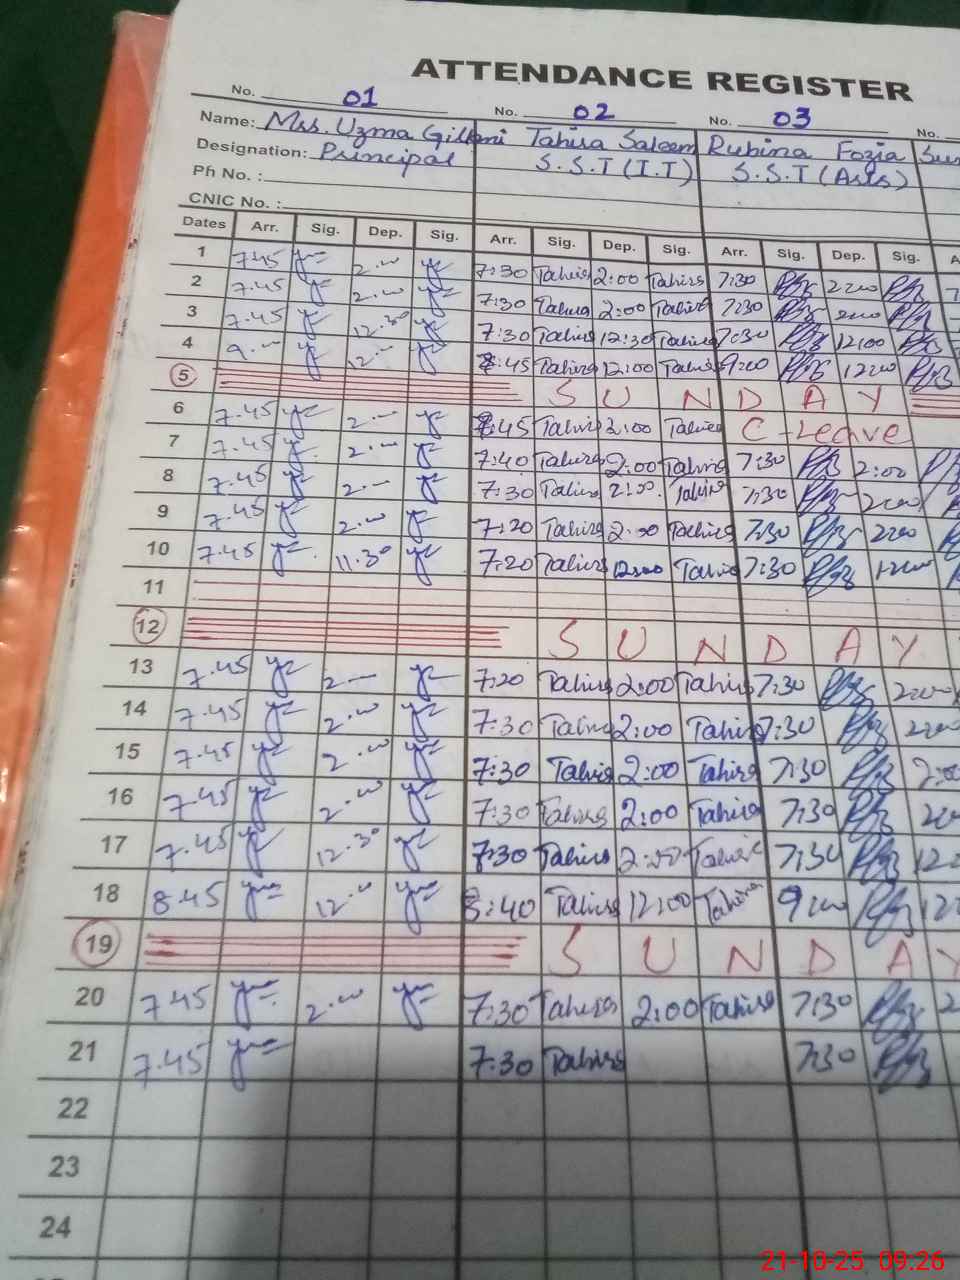 ATTENDANCE REGISTER
No. 01 No. 02 No. 03 No.
Name: Mrs. Uzma Gillani Tahira Saleem Rubina Fozia
Designation: Principal S.S.T (I.T) S.S.T (Arts)
Ph No. :
CNIC No. :
Dates Arr. Sig. Dep. Sig. Arr. Sig. Dep. Sig. Arr. Sig. Dep. Sig. A
1 7.45 2.00 7:30 Tahira 2:00 Tahira 7:30 2:00
2 7.45 2.00 7:30 Tahira 2:00 Tahira 7:30 2:00
3 7.45 12.30 7:30 Tahira 12:30 Tahira 7:30 12:00
4 9.00 12.00 8:45 Tahira 12:00 Tahira 9:00 12:00
5 SUNDAY
6 7.45 2.00 Tahira 2:00 Tahira C-Leave
7 7.45 2.00 7:40 Tahira 2:00 Tahira 7:30 2:00
8 7.45 2.00 7:30 Tahira 2:00 Tahira 7:30 2:00
9 7.45 2.00 7:20 Tahira 2:00 Tahira 7:30 2:00
10 7.45 11.30 7:20 Tahira 12:00 Tahira 7:30 12:00
11
12 SUNDAY
13 7.45 2.00 7:20 Tahira 2:00 Tahira 7:30 2:00
14 7.45 2.00 7:30 Tahira 2:00 Tahira 7:30 2:00
15 7.45 2.00 7:30 Tahira 2:00 Tahira 7:30 2:00
16 7.45 2.00 7:30 Tahira 2:00 Tahira 7:30
17 7.45 12.30 7:30 Tahira 2:00 Tahira 7:30
18 8.45 12.00 8:40 Tahira 12:00 Tahira 9:00
19 SUNDAY
20 7.45 2.00 7:30 Tahira 2:00 Tahira 7:30 2
21 7.45 7:30 Tahira 7:30
22
23
24
21-10-25 09:26